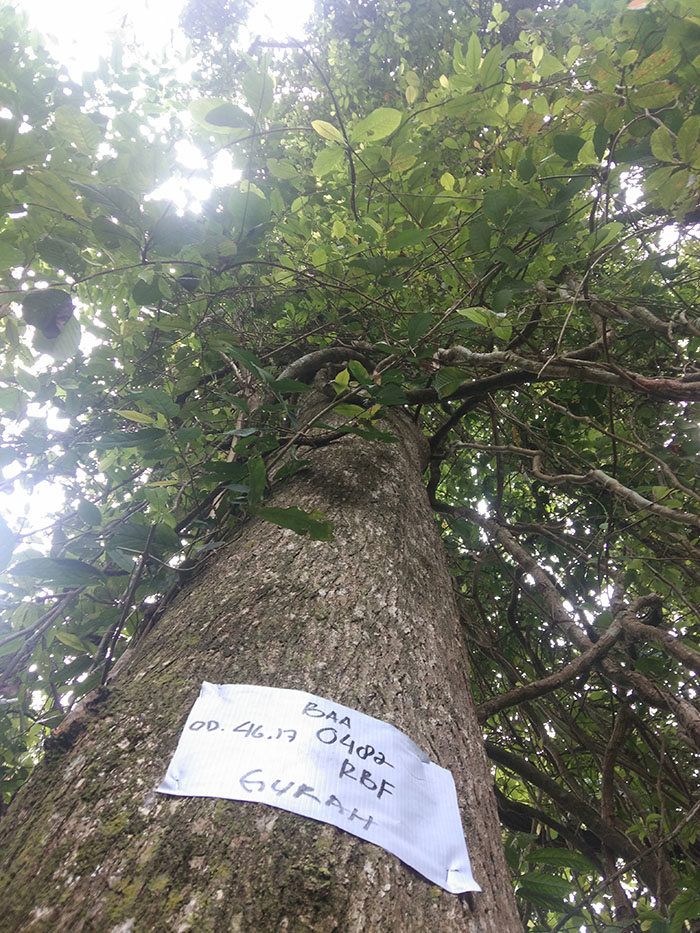 BAA
OD. 46.17 0482
RBF
GYRAH